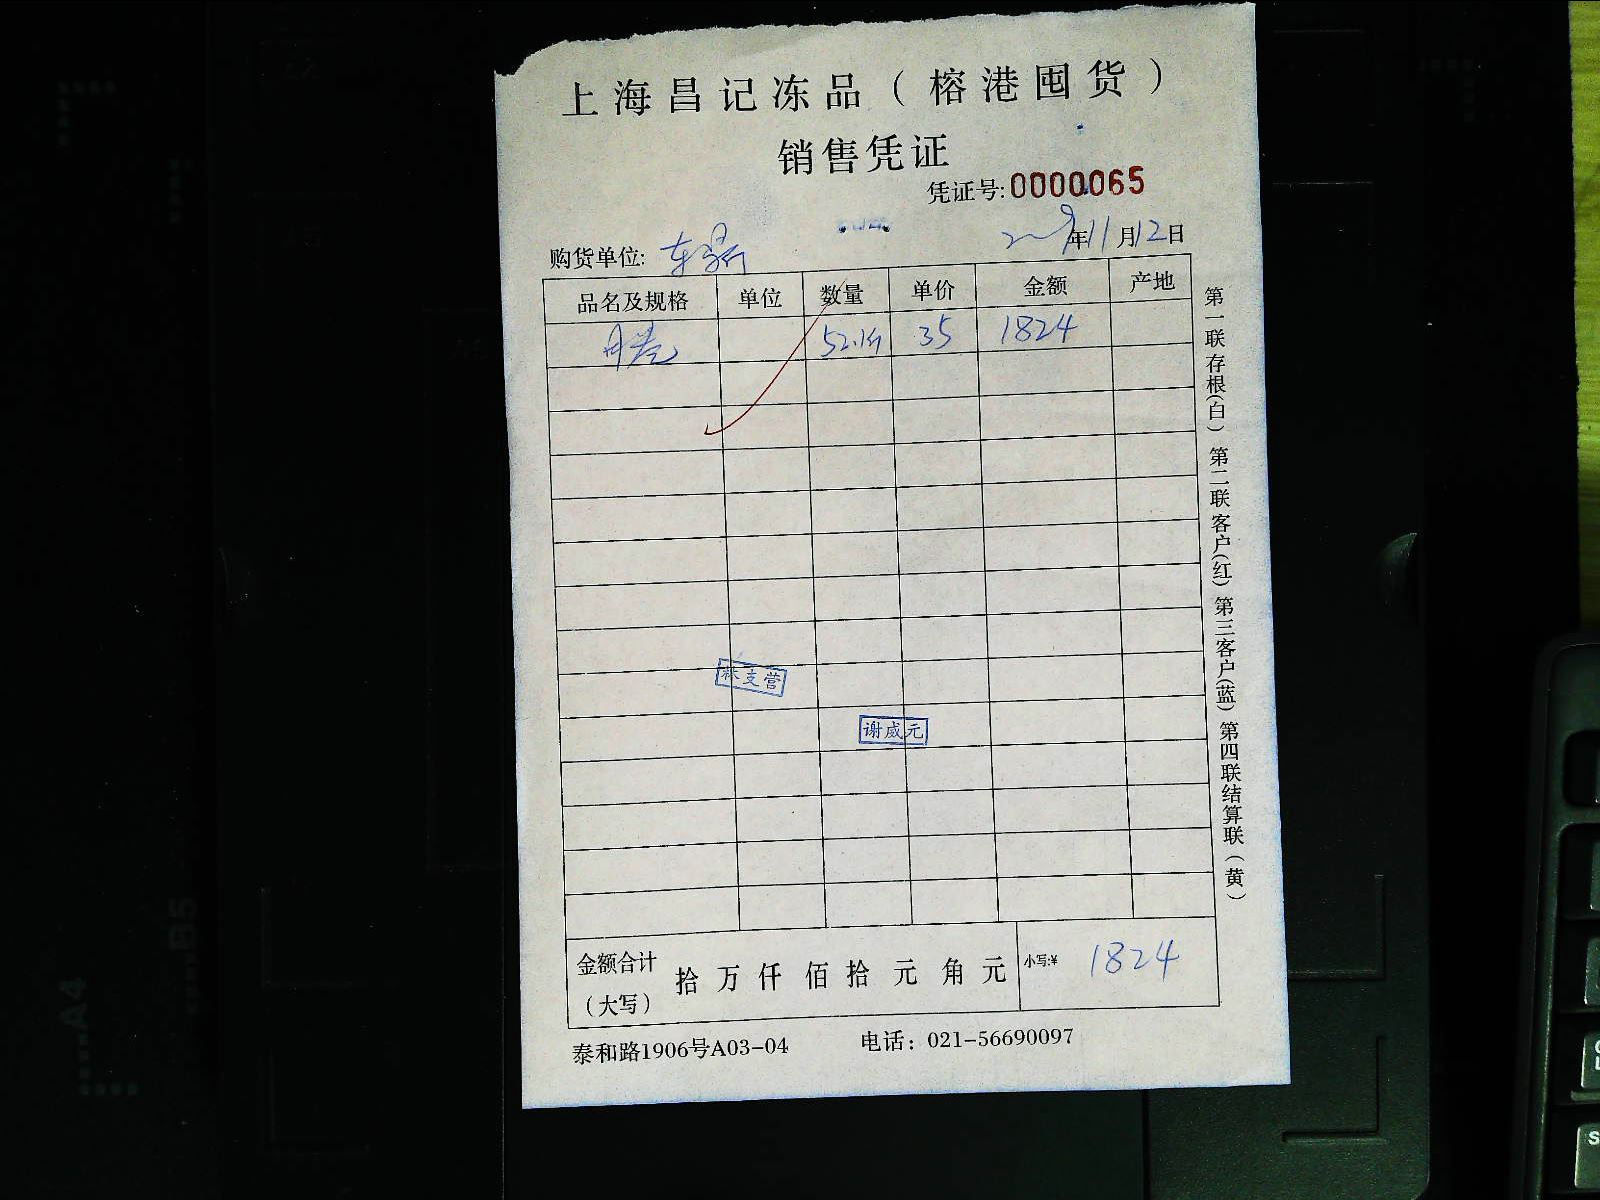 上海昌记冻品（榕港囤货）
销售凭证
凭证号:0000065
购货单位: 年11月12日
品名及规格 单位 数量 单价 金额 产地
35 1824
林支营
谢威元
金额合计（大写） 拾 万 仟 佰 拾 元 角 元 小写:¥ 1824
泰和路1906号A03-04 电话：021-56690097
第一联存根（白） 第二联客户（红） 第三客户（蓝） 第四联结算联（黄）
A4
B5